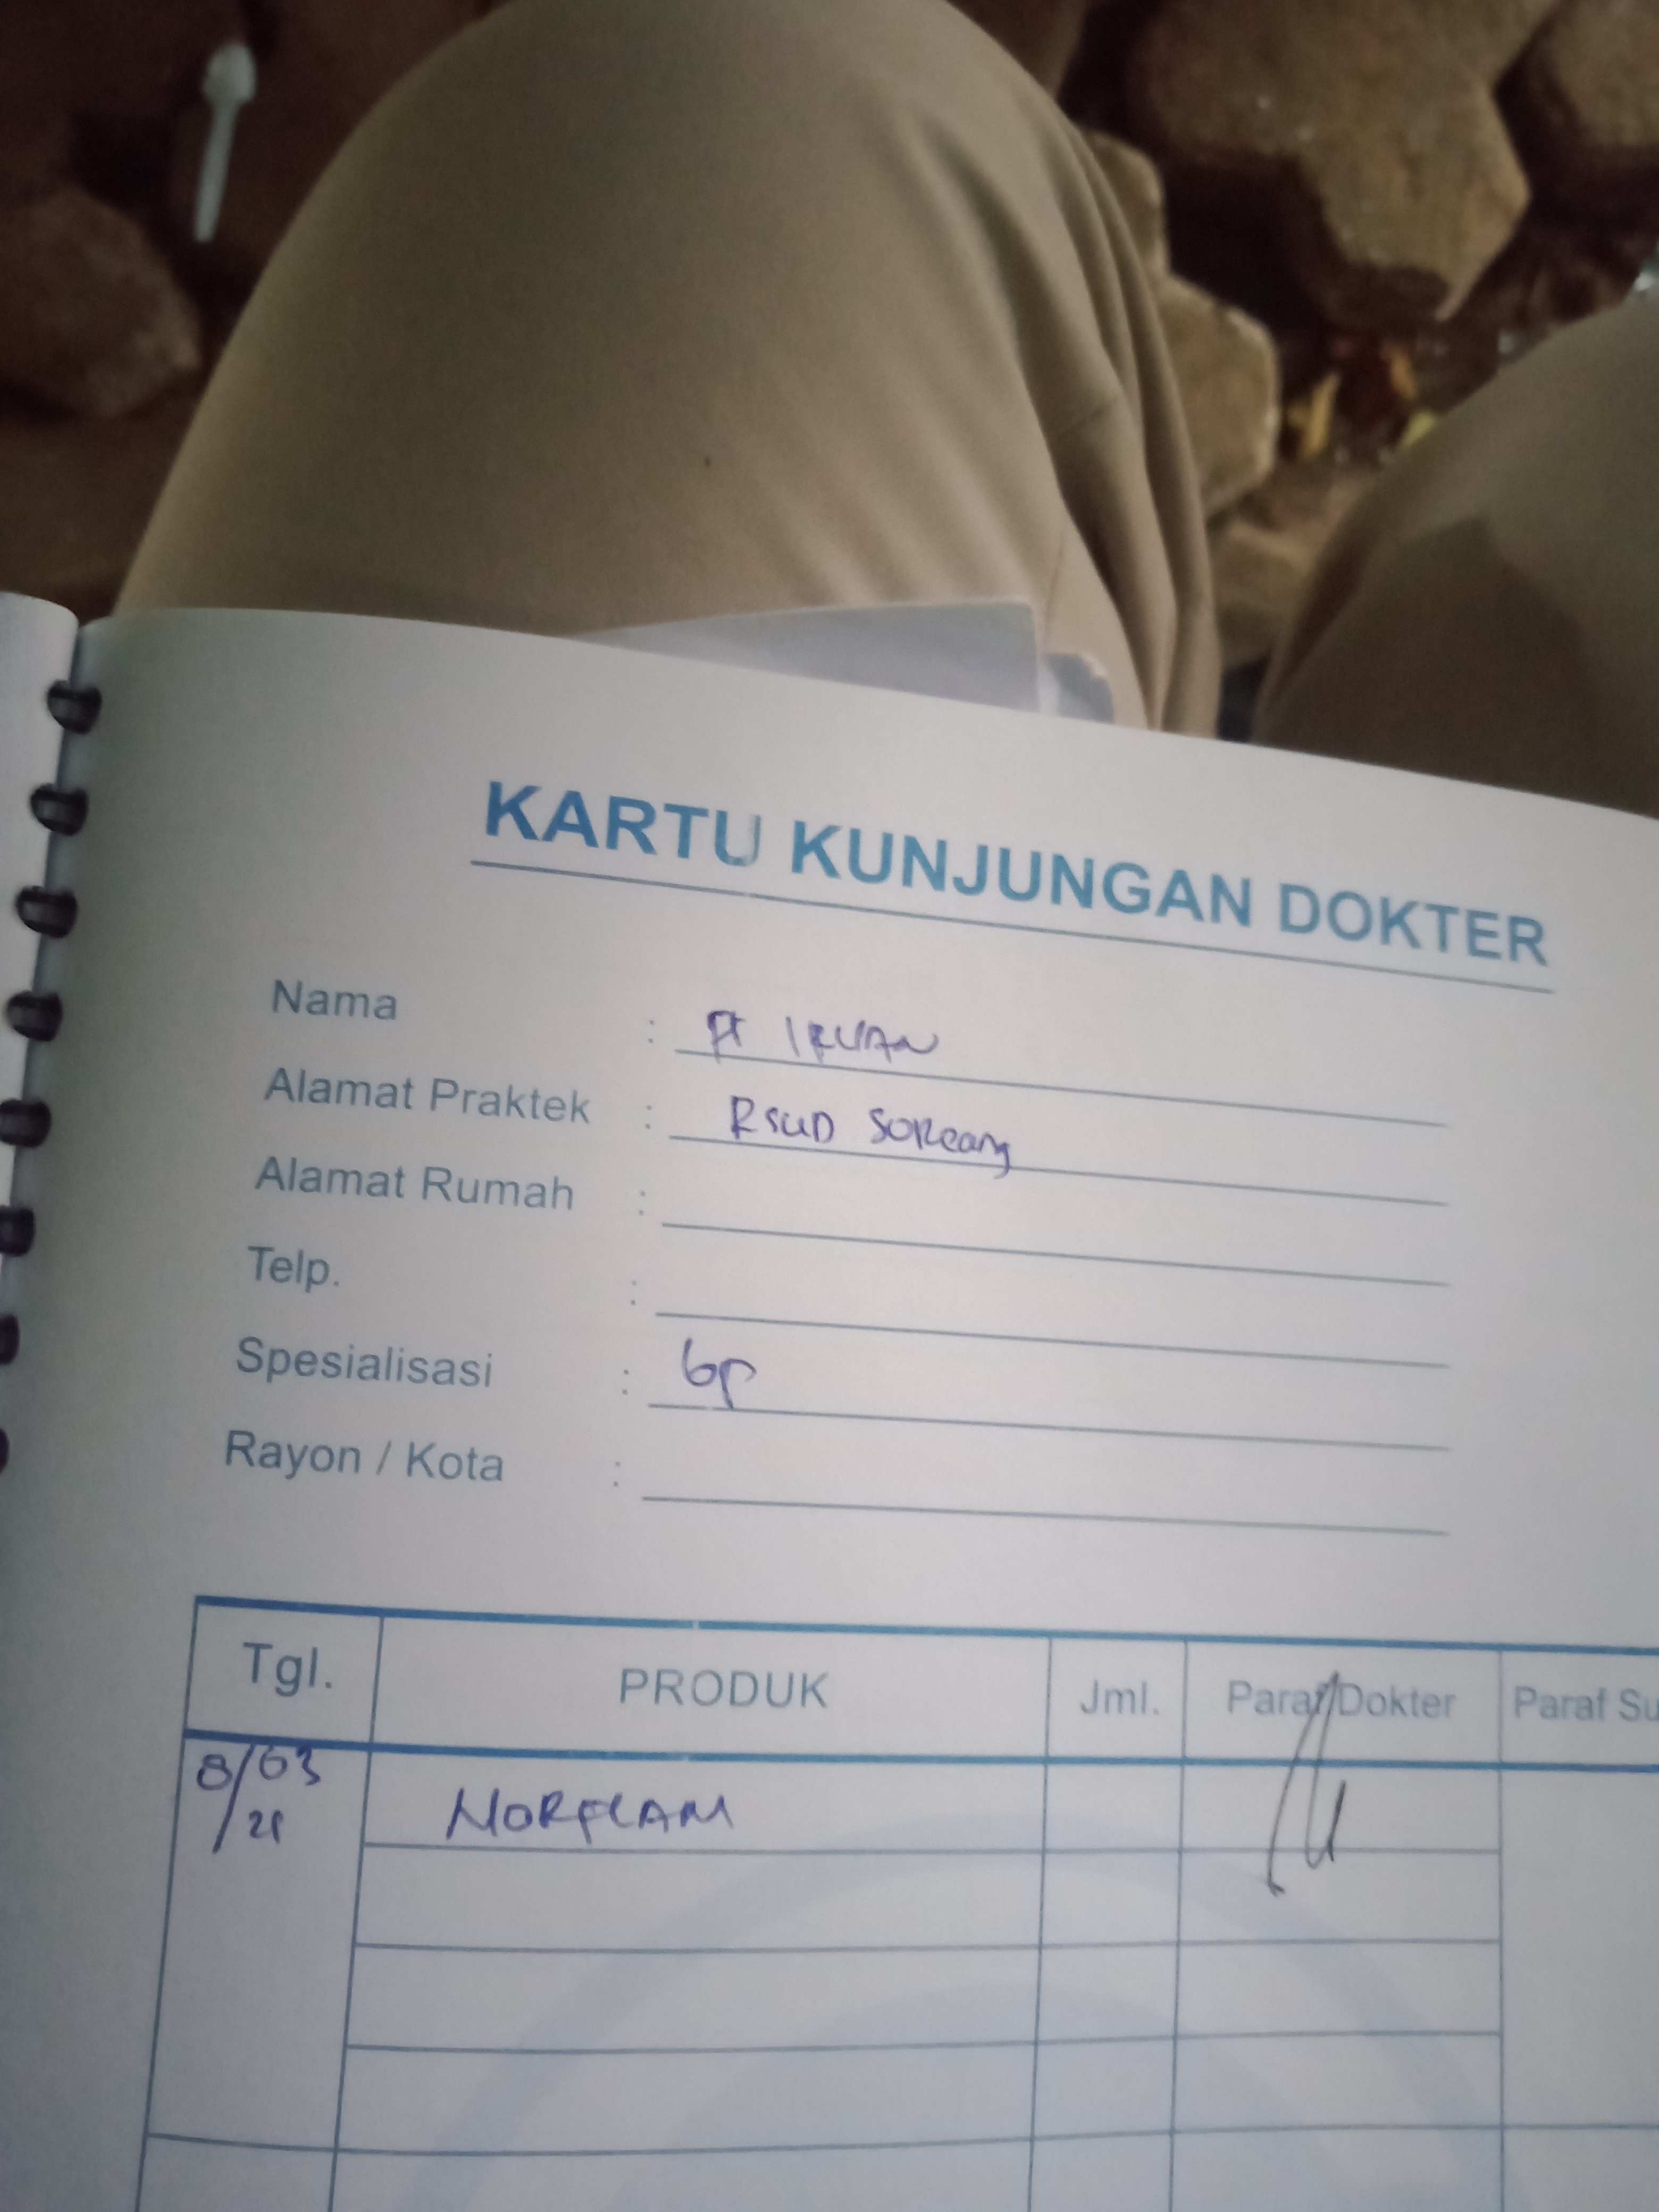 KARTU KUNJUNGAN DOKTER
Nama : IRVAN
Alamat Praktek : RSUD Soreang
Alamat Rumah :
Telp. :
Spesialisasi : Gp
Rayon / Kota :
Tgl. PRODUK Jml. Paraf Dokter Paraf Su
8/03/21 NORFLAM